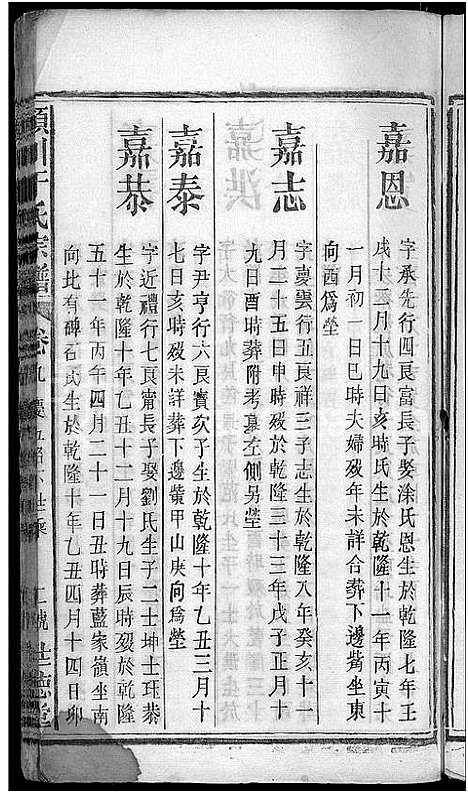 嘉恩
字承先行四良富長子娶涂氏恩生於乾隆七年壬
戌十二月十九日亥時氏生於乾隆十一年丙寅十
一月初一日巳時夫婦歿年未詳合葬下邊觜坐東
向酉爲塋
嘉志
字慶雲行五良祥三子志生於乾隆八年癸亥十一
月二十五日申時歿於乾隆三十三年戊子正月十
九日酉時葬附考墓左側另塋
嘉泰
字尹亨行六良賓次子生於乾隆十年乙丑三月十
七日亥時歿未詳葬下邊觜甲山庚向爲塋
嘉恭
字近禮行七良甯長子娶劉氏生子二士坤士珏恭
生於乾隆十年乙丑十二月十九日辰時歿於乾隆
五十一年丙午四月二十一日丑時葬藍家嶺坐南
向北有碑石氏生於乾隆十年乙丑四月十四日卯
川于氏宗譜 卷九 慶 世德堂